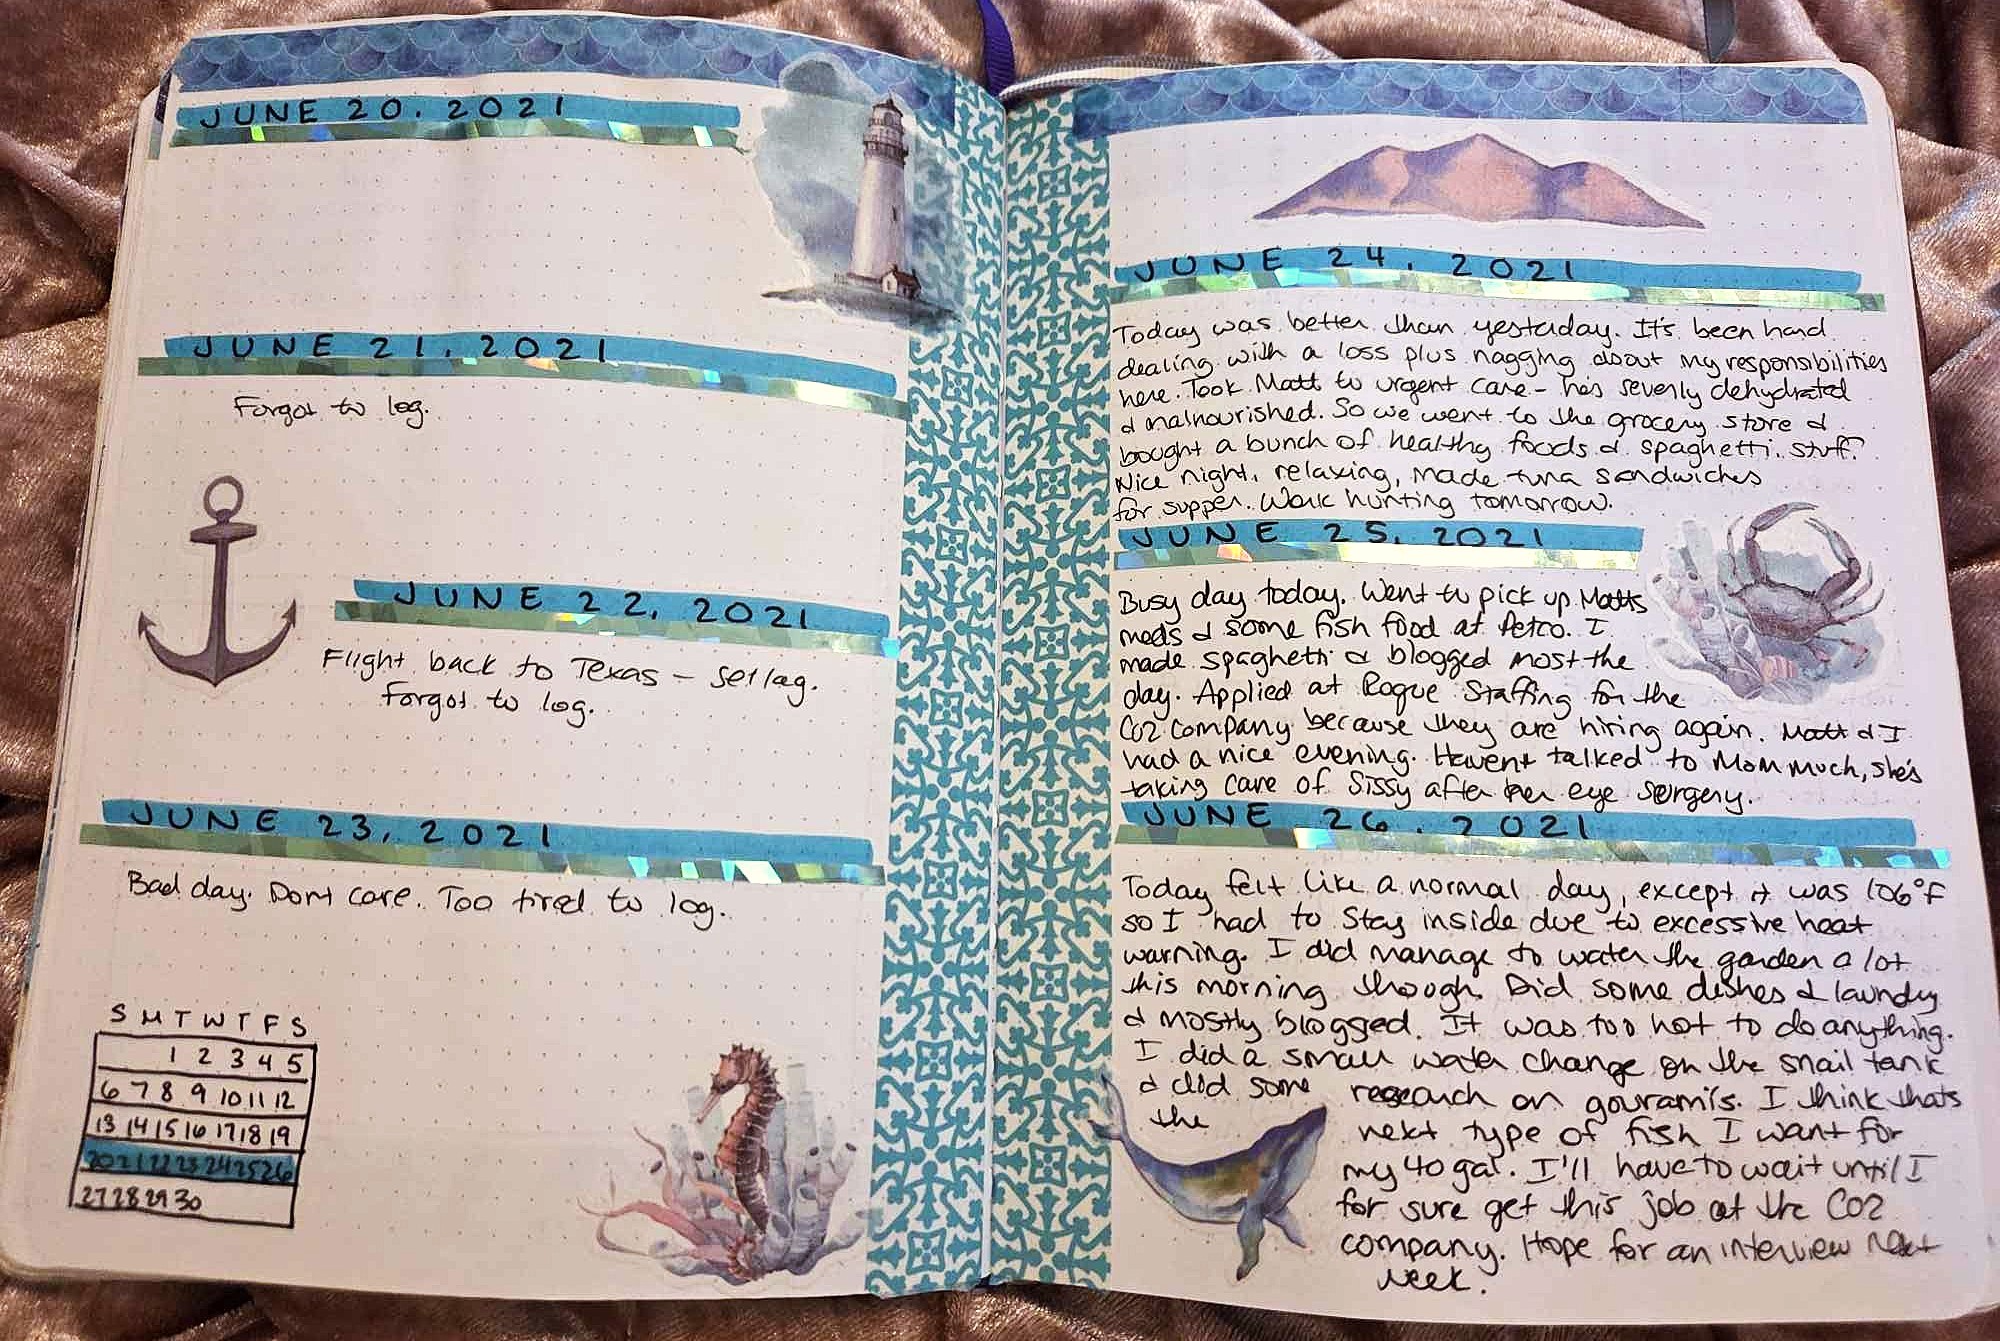 JUNE 20, 2021
JUNE 21, 2021
Forgot to log.
JUNE 22, 2021
Flight back to Texas - Jetlag.
Forgot to log.
JUNE 23, 2021
Bad day. Dont care. Too tired to log.
S M T W T F S
1 2 3 4 5
6 7 8 9 10 11 12
13 14 15 16 17 18 19
20 21 22 23 24 25 26
27 28 29 30
JUNE 24, 2021
Today was better than yesterday. It's been hard
dealing with a loss plus nagging about my responsibilities
here. Took Matt to urgent care - hes severly dehydrated
& malnourished. So we went to the grocery store &
bought a bunch of healthy foods & spaghetti stuff.
Nice night, relaxing, made tuna sandwiches
for supper. Work hunting tomorrow.
JUNE 25, 2021
Busy day today. Went to pick up Matts
meds & some fish food at Petco. I
made spaghetti & blogged most the
day. Applied at Rogue Staffing for the
CO2 company because they are hiring again. Matt & I
had a nice evening. Havent talked to Mom much, she's
taking care of Sissy after her eye surgery.
JUNE 26, 2021
Today felt like a normal day, except it was 106°F
so I had to stay inside due to excessive heat
warning. I did manage to water the garden a lot
this morning though. Did some dishes & laundry
& mostly blogged. It was too hot to do anything.
I did a small water change on the snail tank
& did some research on gouramis. I think thats
the next type of fish I want for
my 40 gal. I'll have to wait until I
for sure get this job at the CO2
company. Hope for an interview next
week.